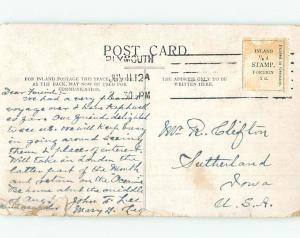 POST CARD.
PLYMOUTH
FOR INLAND POSTAGE THIS SPACE,
AS THE BACK, MAY NOW BE USED FOR
COMMUNICATION.
THE ADDRESS ONLY TO BE
WRITTEN HERE.
INLAND
½d
STAMP.
FOREIGN
1d.
Dear Friend:
We had a very pleasant
voyage over
Our friends delighted
to see us. We will keep busy
in going around seeing
them & places of interest.
Will take in London the
latter part of the Month
and return on the
be home about the middle
of Aug.
John F. Lee
Mary H. Lee
Mr. R. Clifton
Sutherland
Iowa
U.S.A.